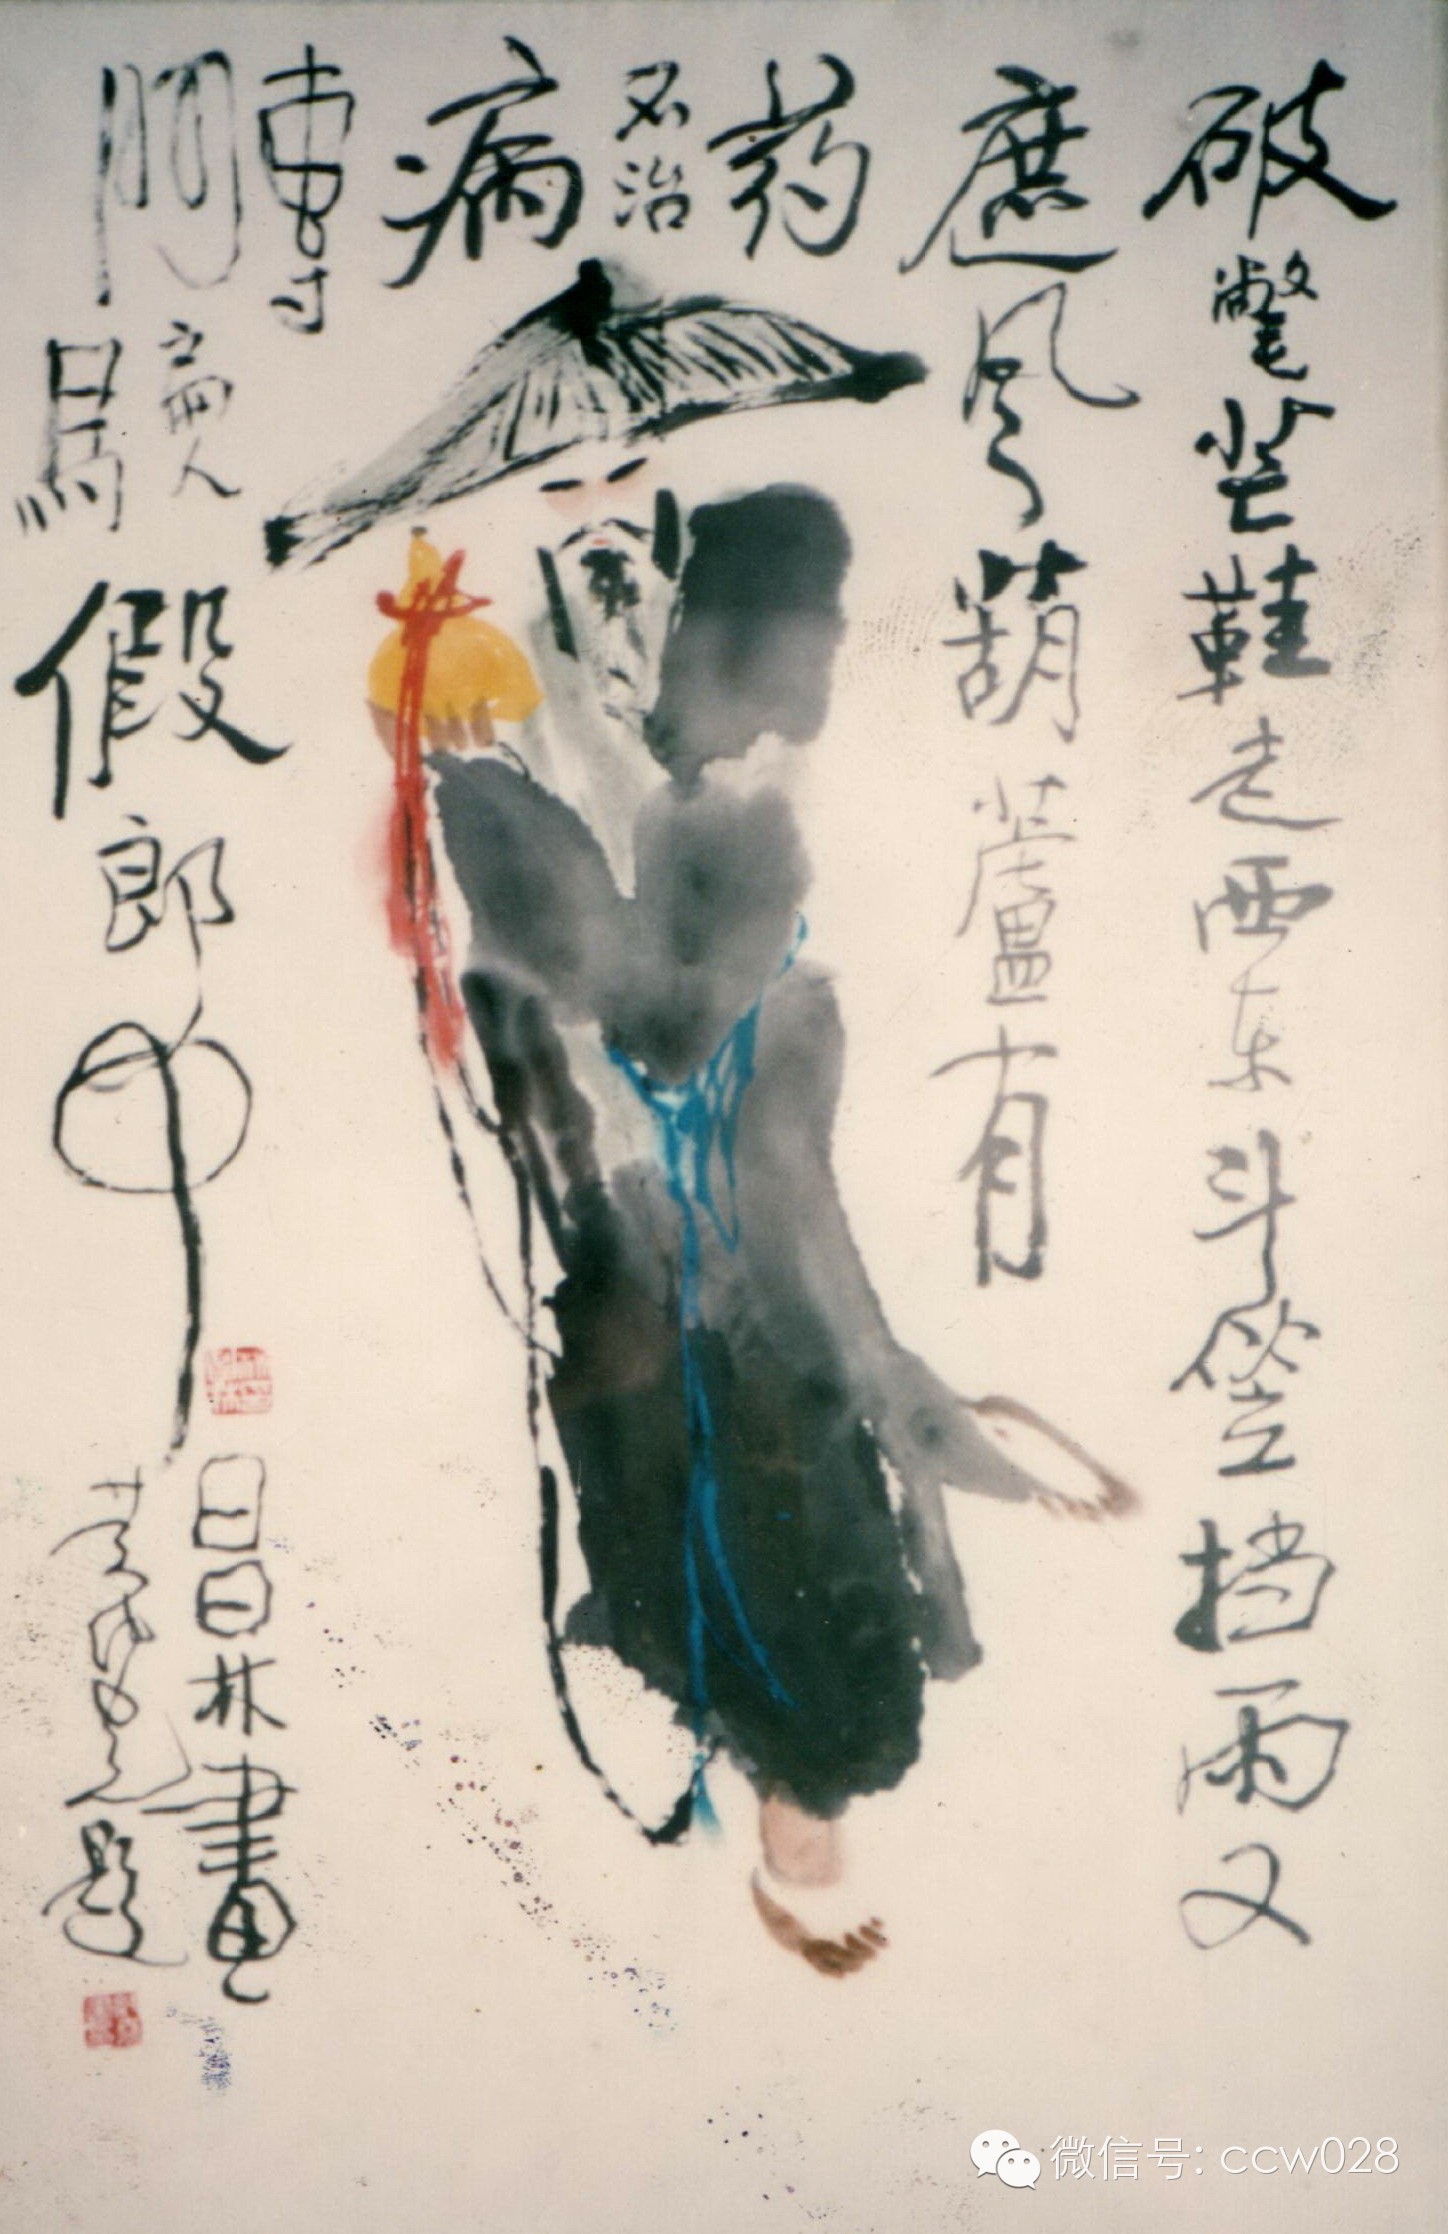 破鳖芒鞋走西东斗笠挡雨又
遮风葫蘆有
药
不治
病
專
门
骗人
骂假郎中
昌林畫
題
微信号: ccw028